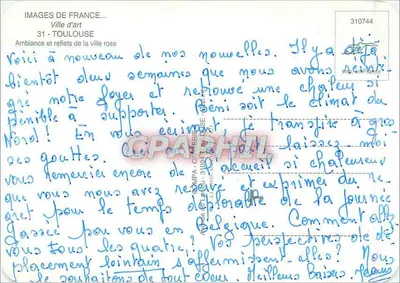 IMAGES DE FRANCE...
Ville d'art
31 - TOULOUSE
Ambiance et reflets de la ville rose
310744
Voici à nouveau de nos nouvelles. Il y a déjà
bientôt deux semaines que nous avons réinté-
gré notre foyer et retrouvé une chaleur si
pénible à supporter. Béni soit le climat du
Nord ! En vous écrivant je transpire à gros-
ses gouttes. laissez-moi
vous remercier encore de l'accueil si chaleureux
que vous nous avez réservé et exprimer du re-
gret pour le temps déplorable de la journée
passée pour vous en Belgique. Comment allez
vous tous les quatre ? Vos perspectives de dé-
placement lointain s'affermissent elles ? Nous
le souhaitons de tout coeur. Meilleurs baisers